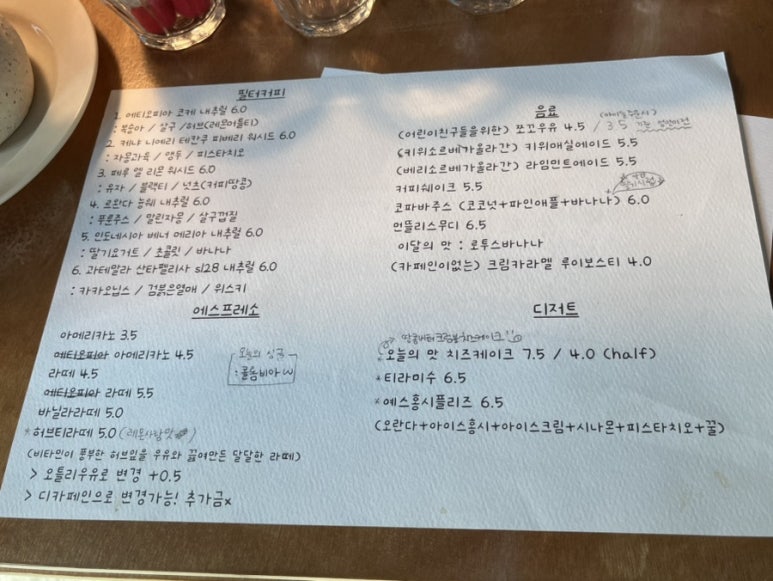 필터커피
1. 에티오피아 코케 내추럴 6.0
: 복숭아 / 살구 / 허브(레몬머틀티)
2. 케냐 니에리 테칸구 피베리 워시드 6.0
: 자몽과육 / 앵두 / 피스타치오
3. 페루 엘 리몬 워시드 6.0
: 유자 / 블랙티 / 넛츠(커피땅콩)
4. 르완다 뉴웨 내추럴 6.0
: 푸룬주스 / 말린자몽 / 살구껍질
5. 인도네시아 베너 메리아 내추럴 6.0
: 딸기요거트 / 초콜릿 / 바나나
6. 과테말라 산타펠리사 sl28 내추럴 6.0
: 카카오닙스 / 검붉은열매 / 위스키
에스프레소
아메리카노 3.5
에티오피아 아메리카노 4.5
라떼 4.5
에티오피아 라떼 5.5
오늘의 싱글
: 콜롬비아
바닐라라떼 5.0
*허브티라떼 5.0 (레몬사탕맛)
(비타민이 풍부한 허브잎을 우유와 끓여만든 달달한 라떼)
> 오틀리우유로 변경 +0.5
> 디카페인으로 변경가능! 추가금x
음료
(어린이친구들을위한) 쪼꼬우유 4.5 / 3.5
(키위소르베가올라간) 키위매실에이드 5.5
(베리소르베가올라간) 라임민트에이드 5.5
커피쉐이크 5.5
코파바주스 (코코넛+파인애플+바나나) 6.0
먼뜰리스무디 6.5
이달의 맛 : 로투스바나나
(카페인이없는) 크림카라멜 루이보스티 4.0
디저트
오늘의 맛 치즈케이크 7.5 / 4.0 (half)
*티라미수 6.5
*에스홍시플리즈 6.5
(오란다+아이스홍시+아이스크림+시나몬+피스타치오+꿀)